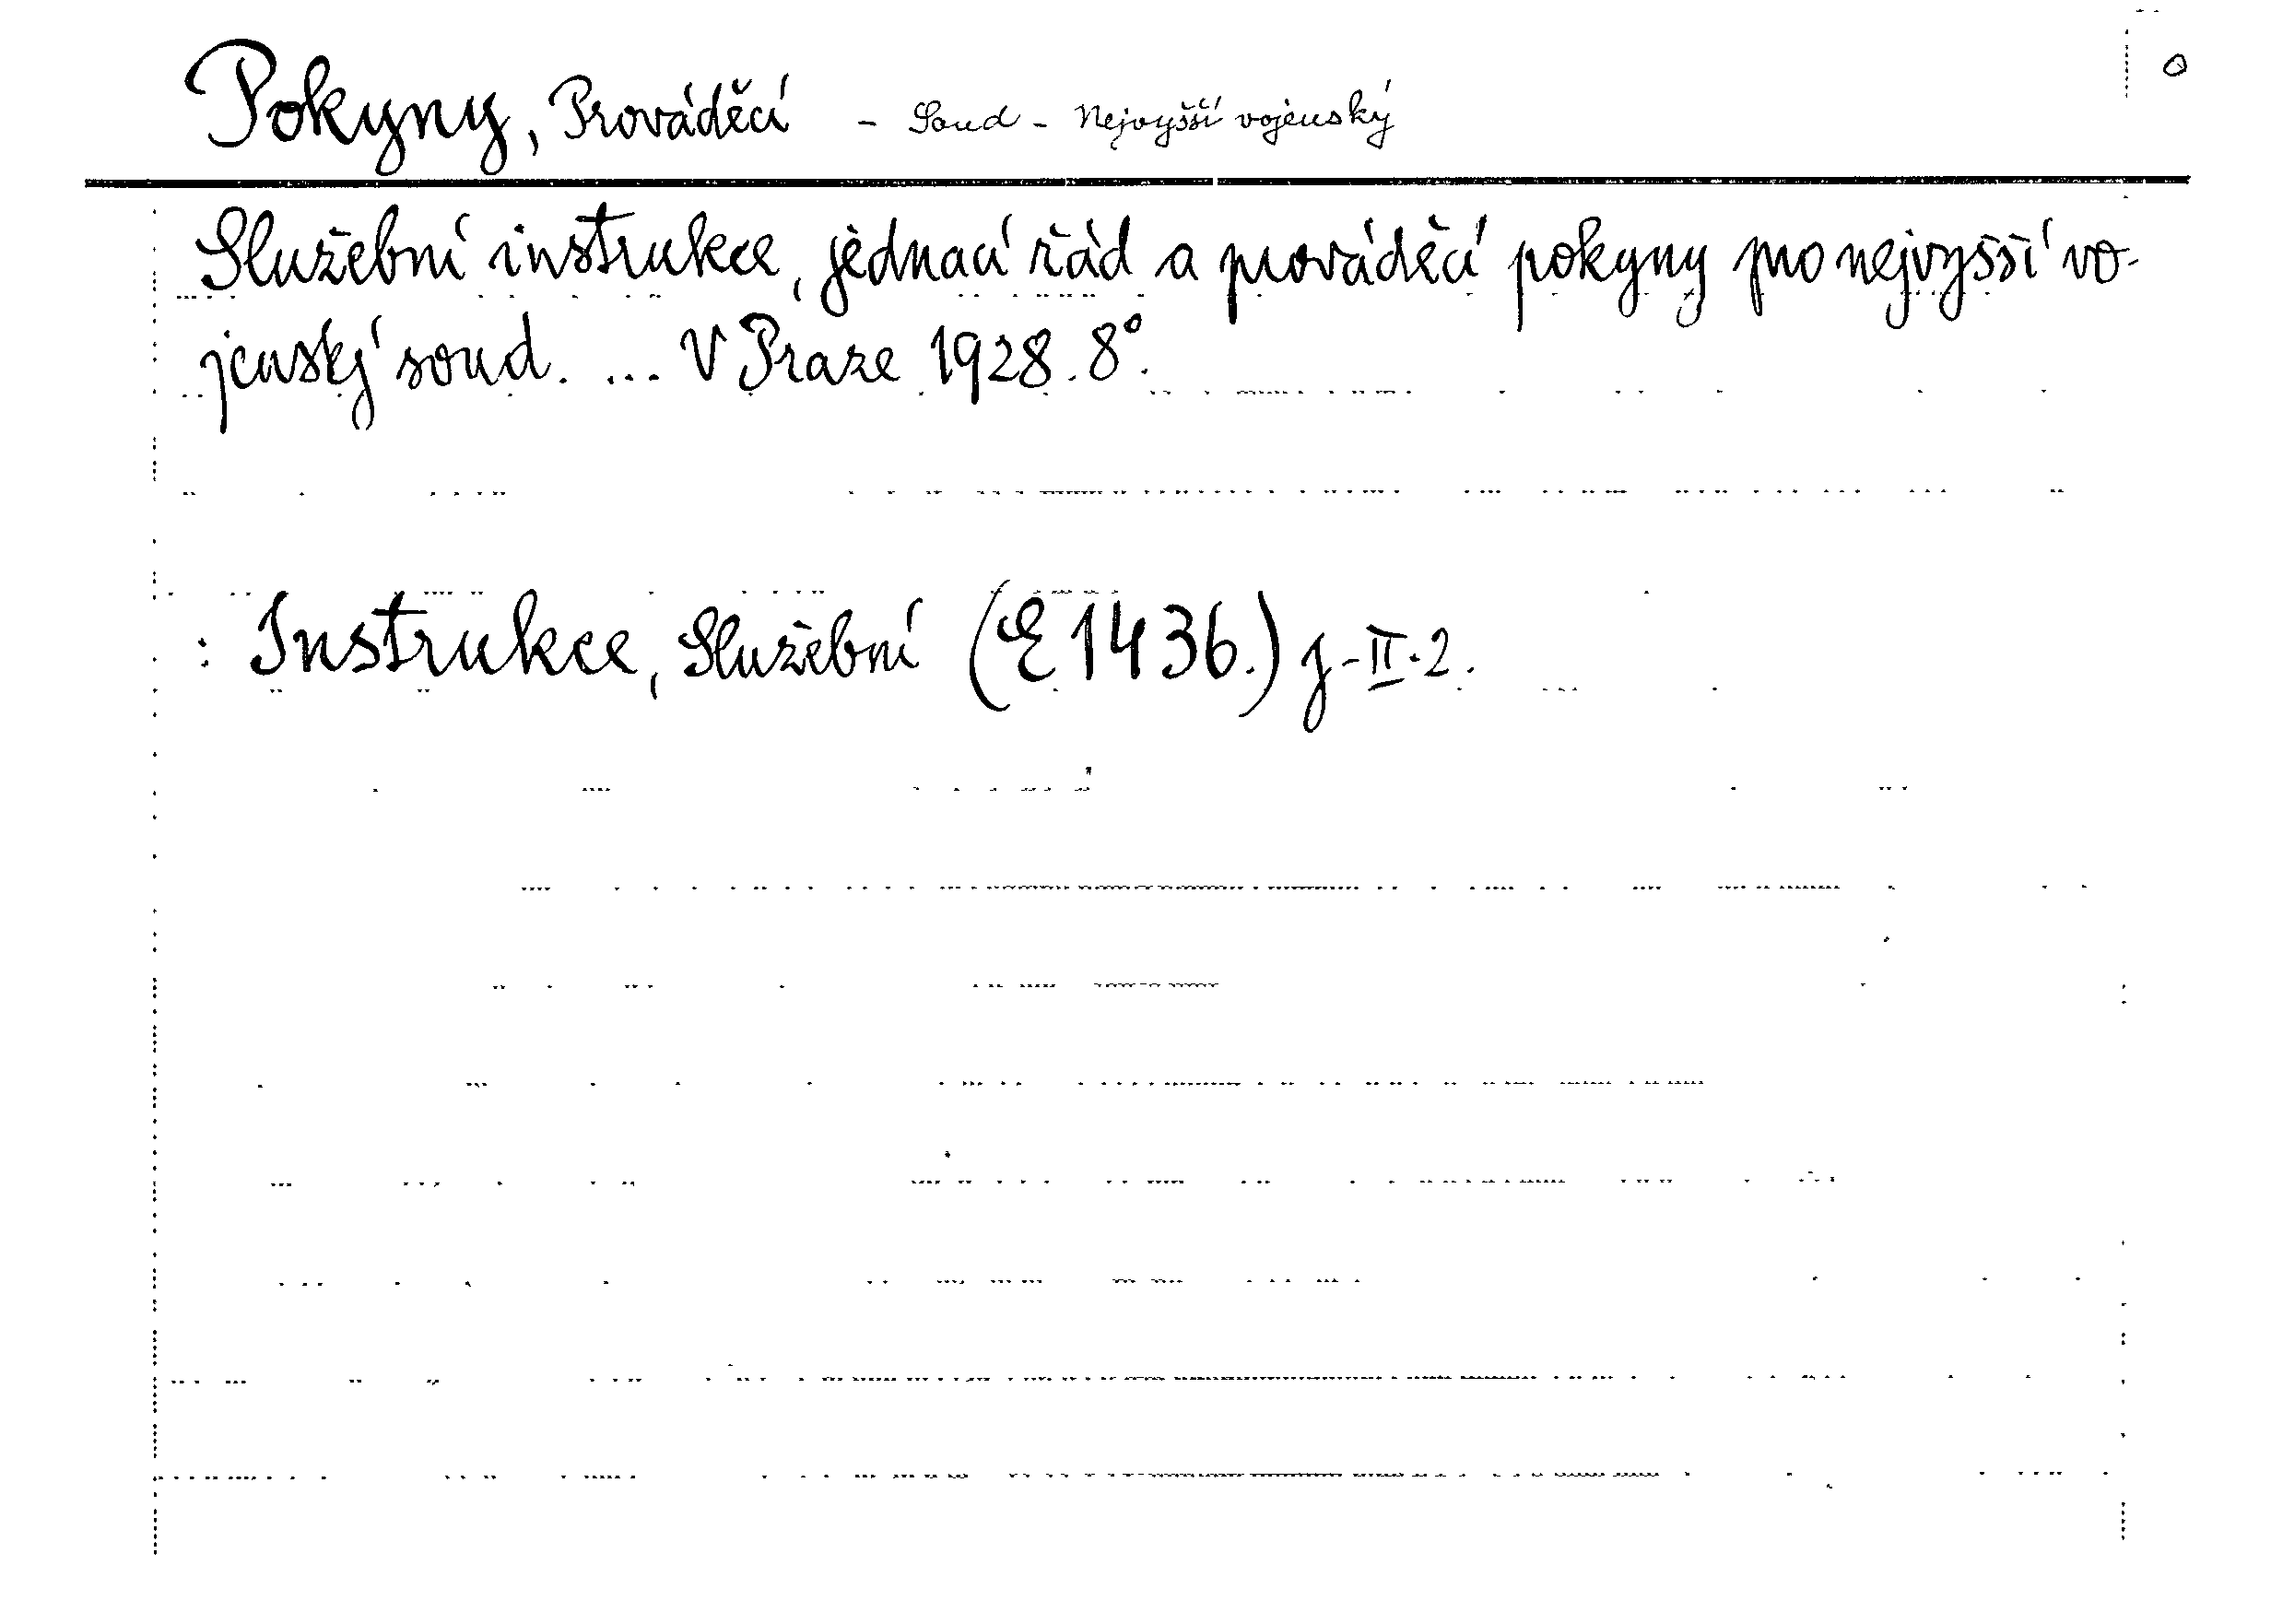 Pokyny, Prováděcí - Soud - Nejvyšší vojenský
Služební instrukce, jednací řád a prováděcí pokyny pro nejvyšší vo-
jenský soud. ... V Praze 1928. 8°.
: Instrukce, Služební (E 1436.) j-II-2.